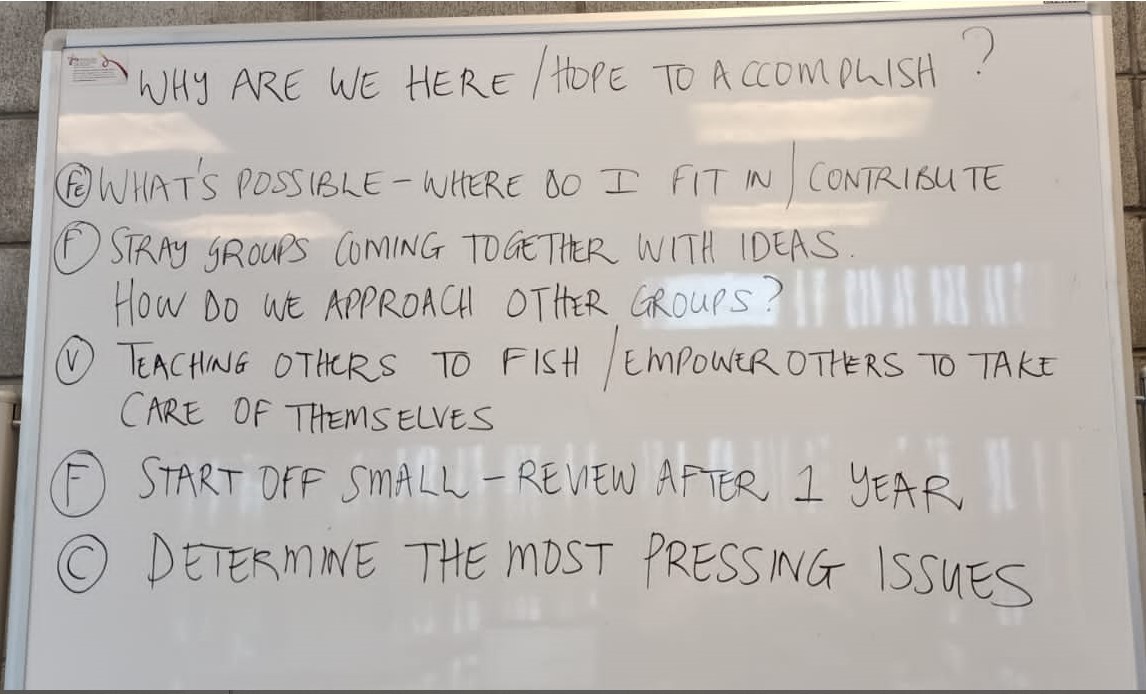 WHY ARE WE HERE / HOPE TO ACCOMPLISH ?
Fc WHAT'S POSSIBLE - WHERE DO I FIT IN / CONTRIBUTE
F STRAY GROUPS COMING TOGETHER WITH IDEAS.
HOW DO WE APPROACH OTHER GROUPS?
V TEACHING OTHERS TO FISH / EMPOWER OTHERS TO TAKE
CARE OF THEMSELVES
F START OFF SMALL - REVIEW AFTER 1 YEAR
C DETERMINE THE MOST PRESSING ISSUES